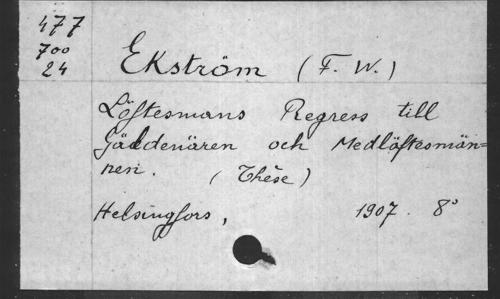 477
700
24
Ekström (F. W.)
Löftesmans Regress till
Gäldenären och Medlöftesmän=
nen. (Thèse)
Helsingfors, 1907. 8°